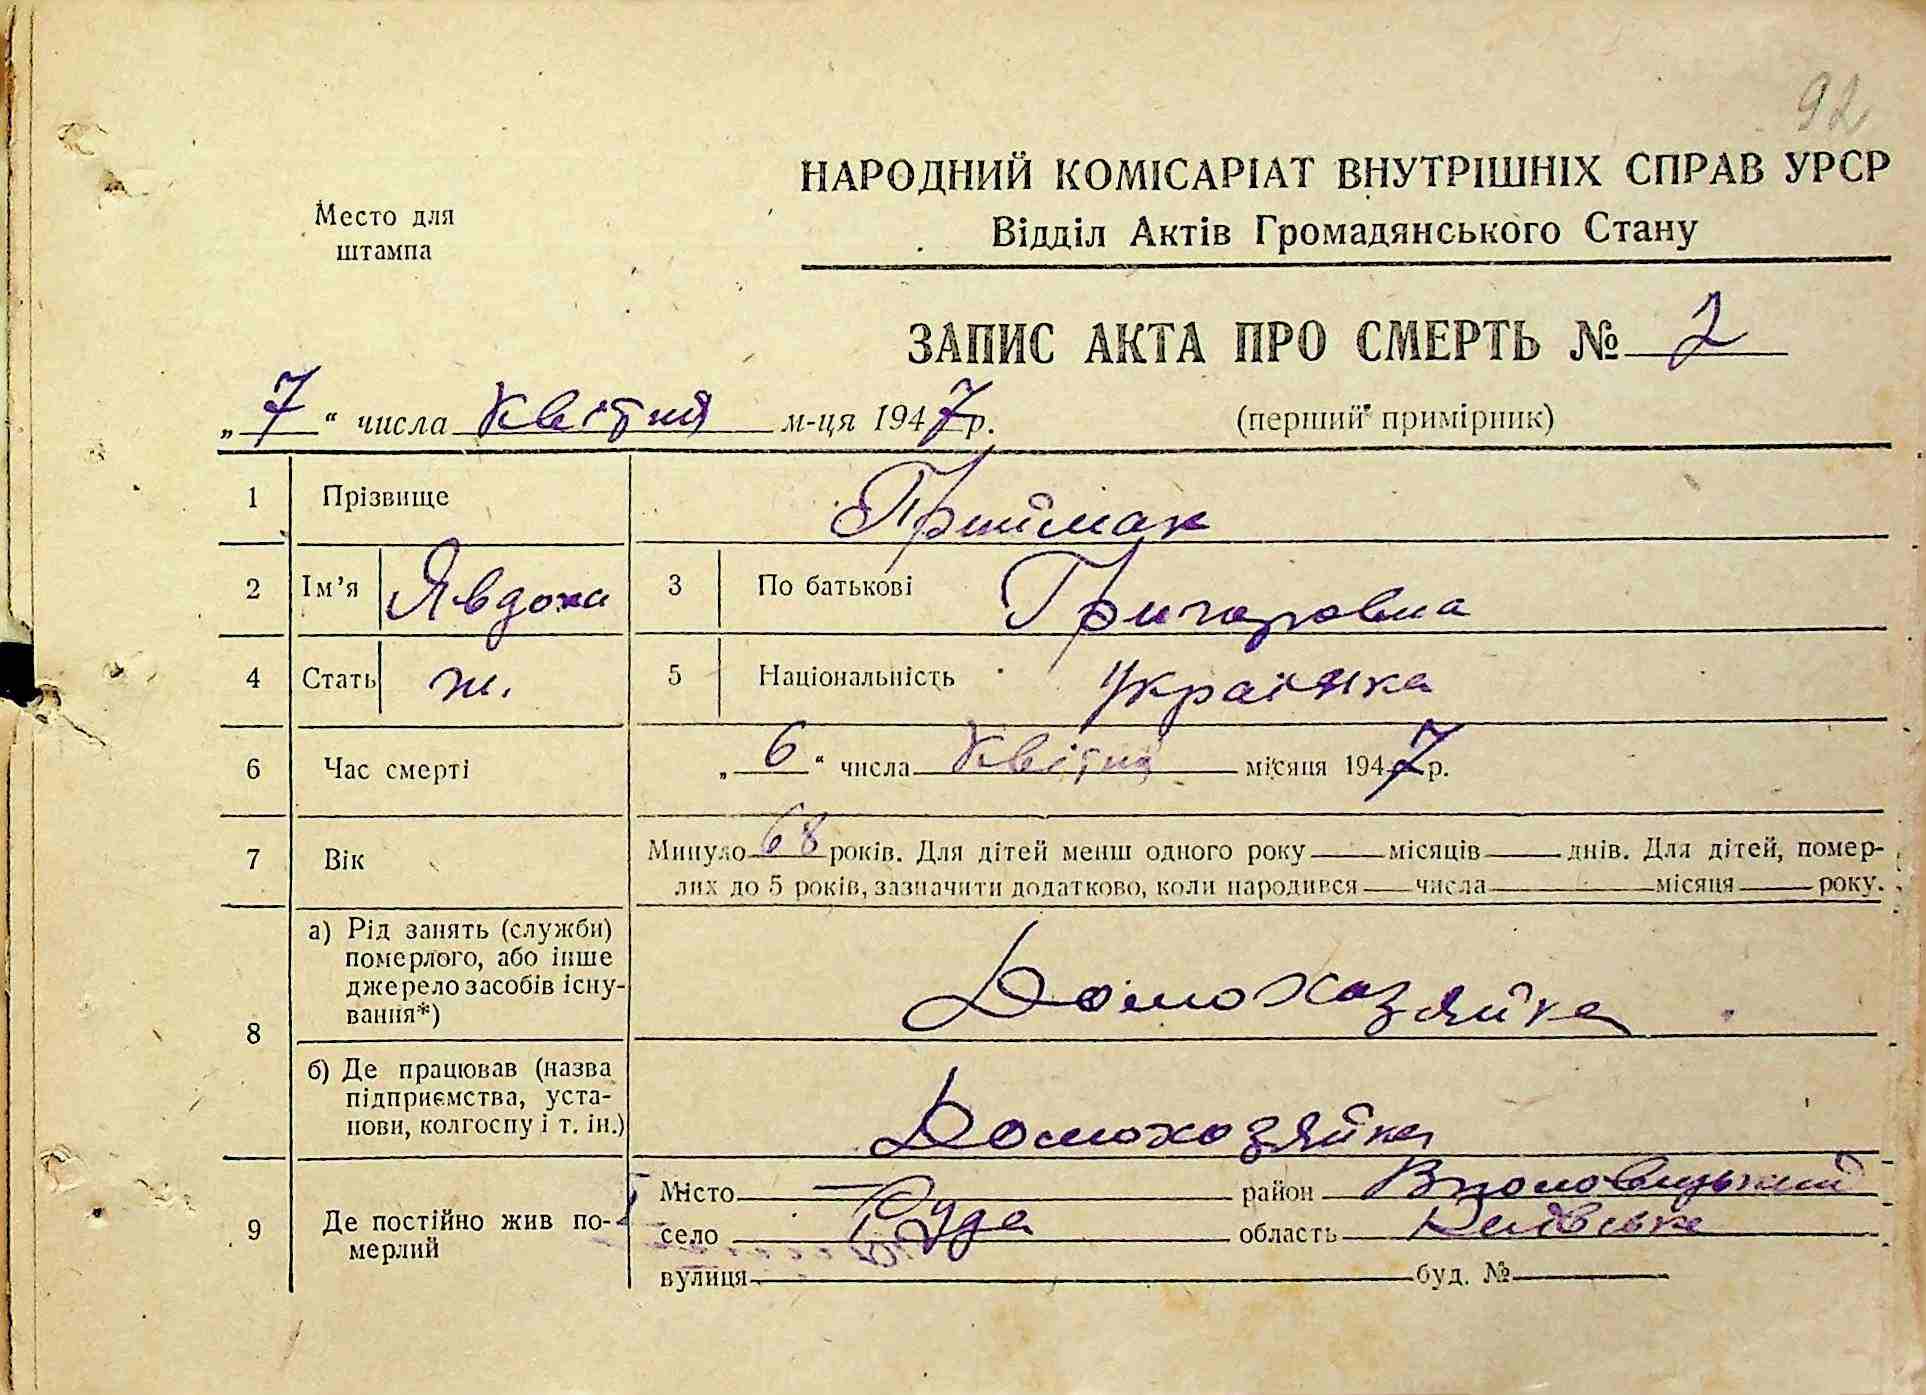 92
НАРОДНИЙ КОМІСАРІАТ ВНУТРІШНІХ СПРАВ УРСР
Место для штампа
Відділ Актів Громадянського Стану
ЗАПИС АКТА ПРО СМЕРТЬ № 2
„7“ числа квітня м-ця 1947 р. (перший примірник)
1 Прізвище Приймак
2 Ім'я Явдоха 3 По батькові Григоровна
4 Стать ж. 5 Національність українка
6 Час смерті „6“ числа квітня місяця 1947 р.
7 Вік Минуло 68 років. Для дітей менш одного року місяців днів. Для дітей, помер-
лих до 5 років, зазначити додатково, коли народився числа місяця року.
8 а) Рід занять (служби)
померлого, або інше
джерело засобів існу-
вання*) Домохозяйка
б) Де працював (назва
підприємства, уста-
нови, колгоспу і т. ін.) Домохозяйка
9 Де постійно жив по-
мерлий
Місто — район
село Руда область Київська
вулиця буд. №